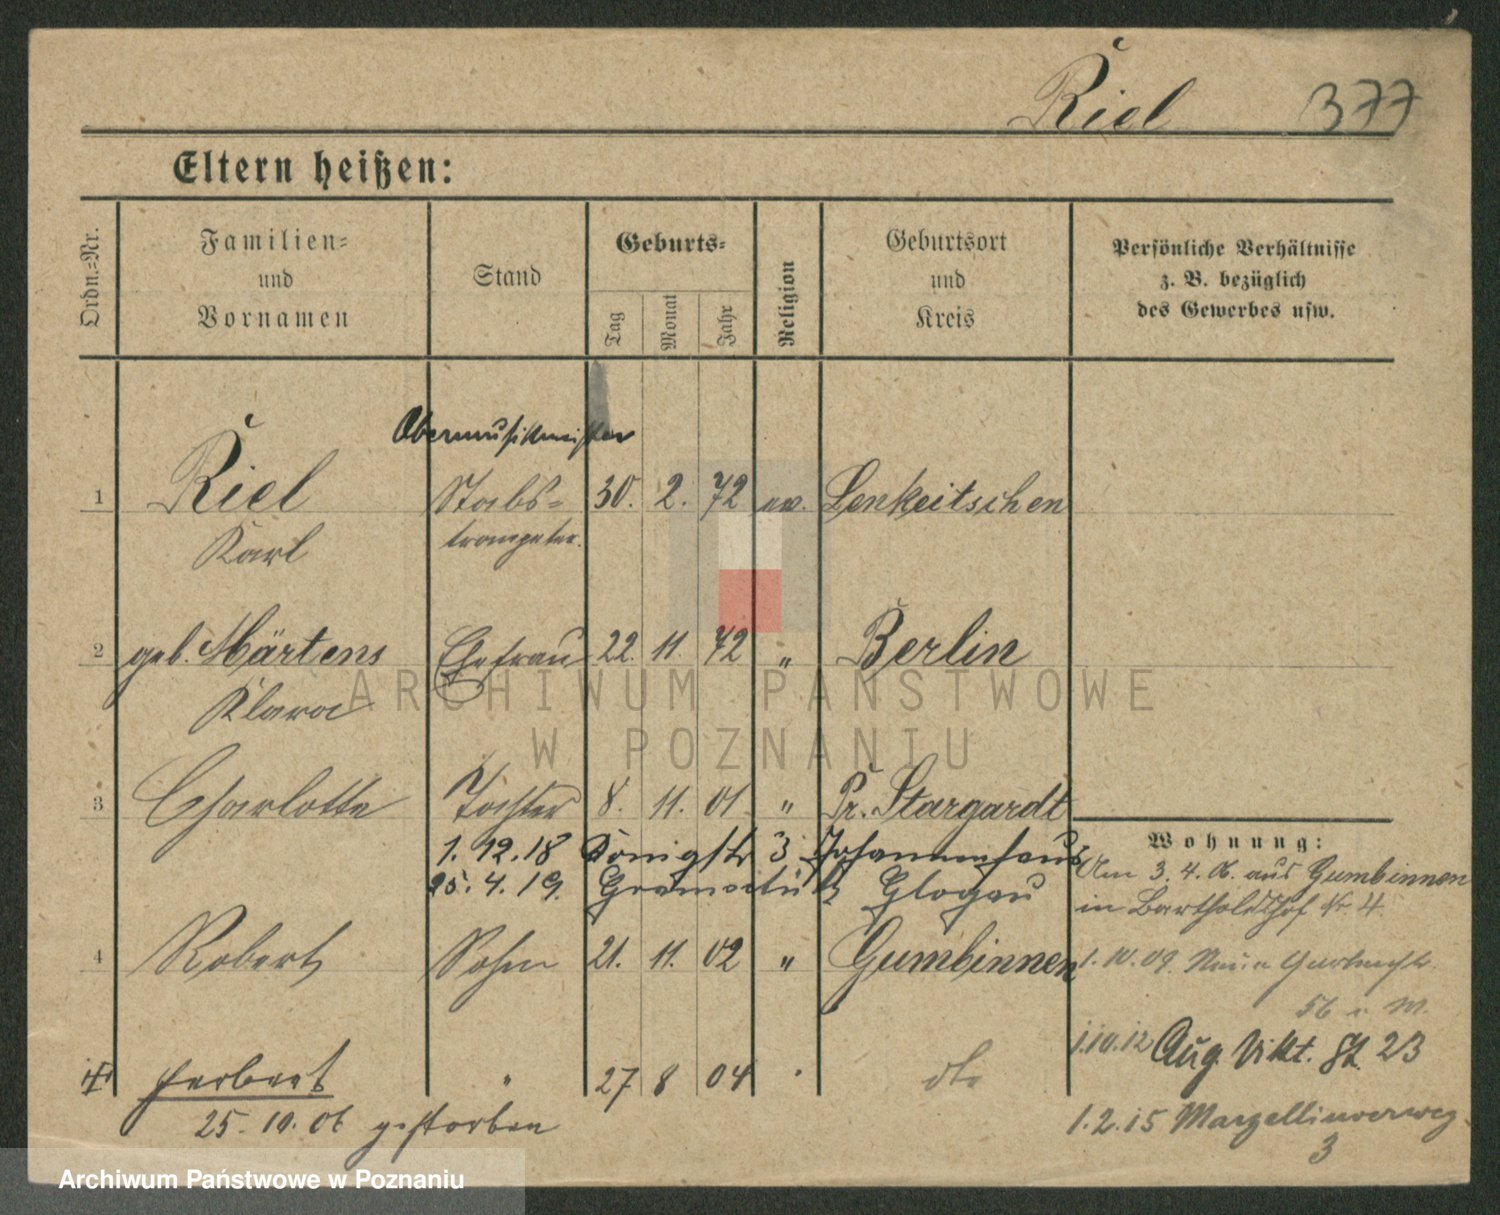 Riel 377
Eltern heißen:
Ordn.=Nr.
Familien=
und
Vornamen
Stand
Geburts=
Tag
Monat
Jahr
Religion
Geburtsort
und
Kreis
Persönliche Verhältnisse
z. B. bezüglich
des Gewerbes usw.
Obermusikmeister
1 Riel Stabs= 30. 2. 72 ev. Lenkeitschen
Karl trompeter.
2 geb. Märtens Ehefrau 22. 11. 72 " Berlin
Klara
3 Charlotte Tochter 8. 11. 01 " Pr. Stargardt
1. 12. 18 Königstr 3 Johannenhaus
25. 4. 19. Glogau
4 Robert Sohn 21. 11. 02 " Gumbinnen
Herbert " 27 8 04 " dto
25. 10. 06 gestorben
Wohnung:
Am 3. 4. 06. aus Gumbinnen
in Bartholdshof Nr. 4.
1. 10. 09. Neue Gartenstr.
56
1.10.12 Aug. Vikt. St. 23
1. 2. 15 Marzellinerweg
3
ARCHIWUM PAŃSTWOWE
W POZNANIU
Archiwum Państwowe w Poznaniu